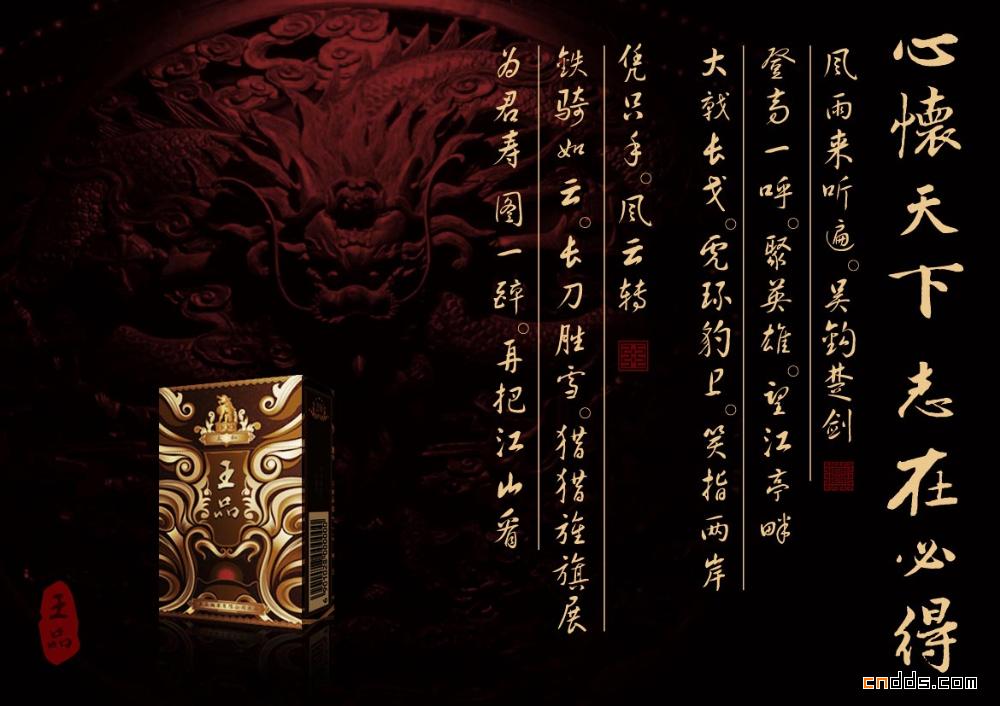 心懷天下志在必得
风雨来听遍。吴鈎楚剑
登高一呼。聚英雄。望江亭畔
大戟长戈。虎环豹上。笑指两岸
凭只手。风云转
铁骑如云。长刀胜雪。猎猎旌旗展
为君寿 图一醉。再把江山看
王品
王品
cndds.com